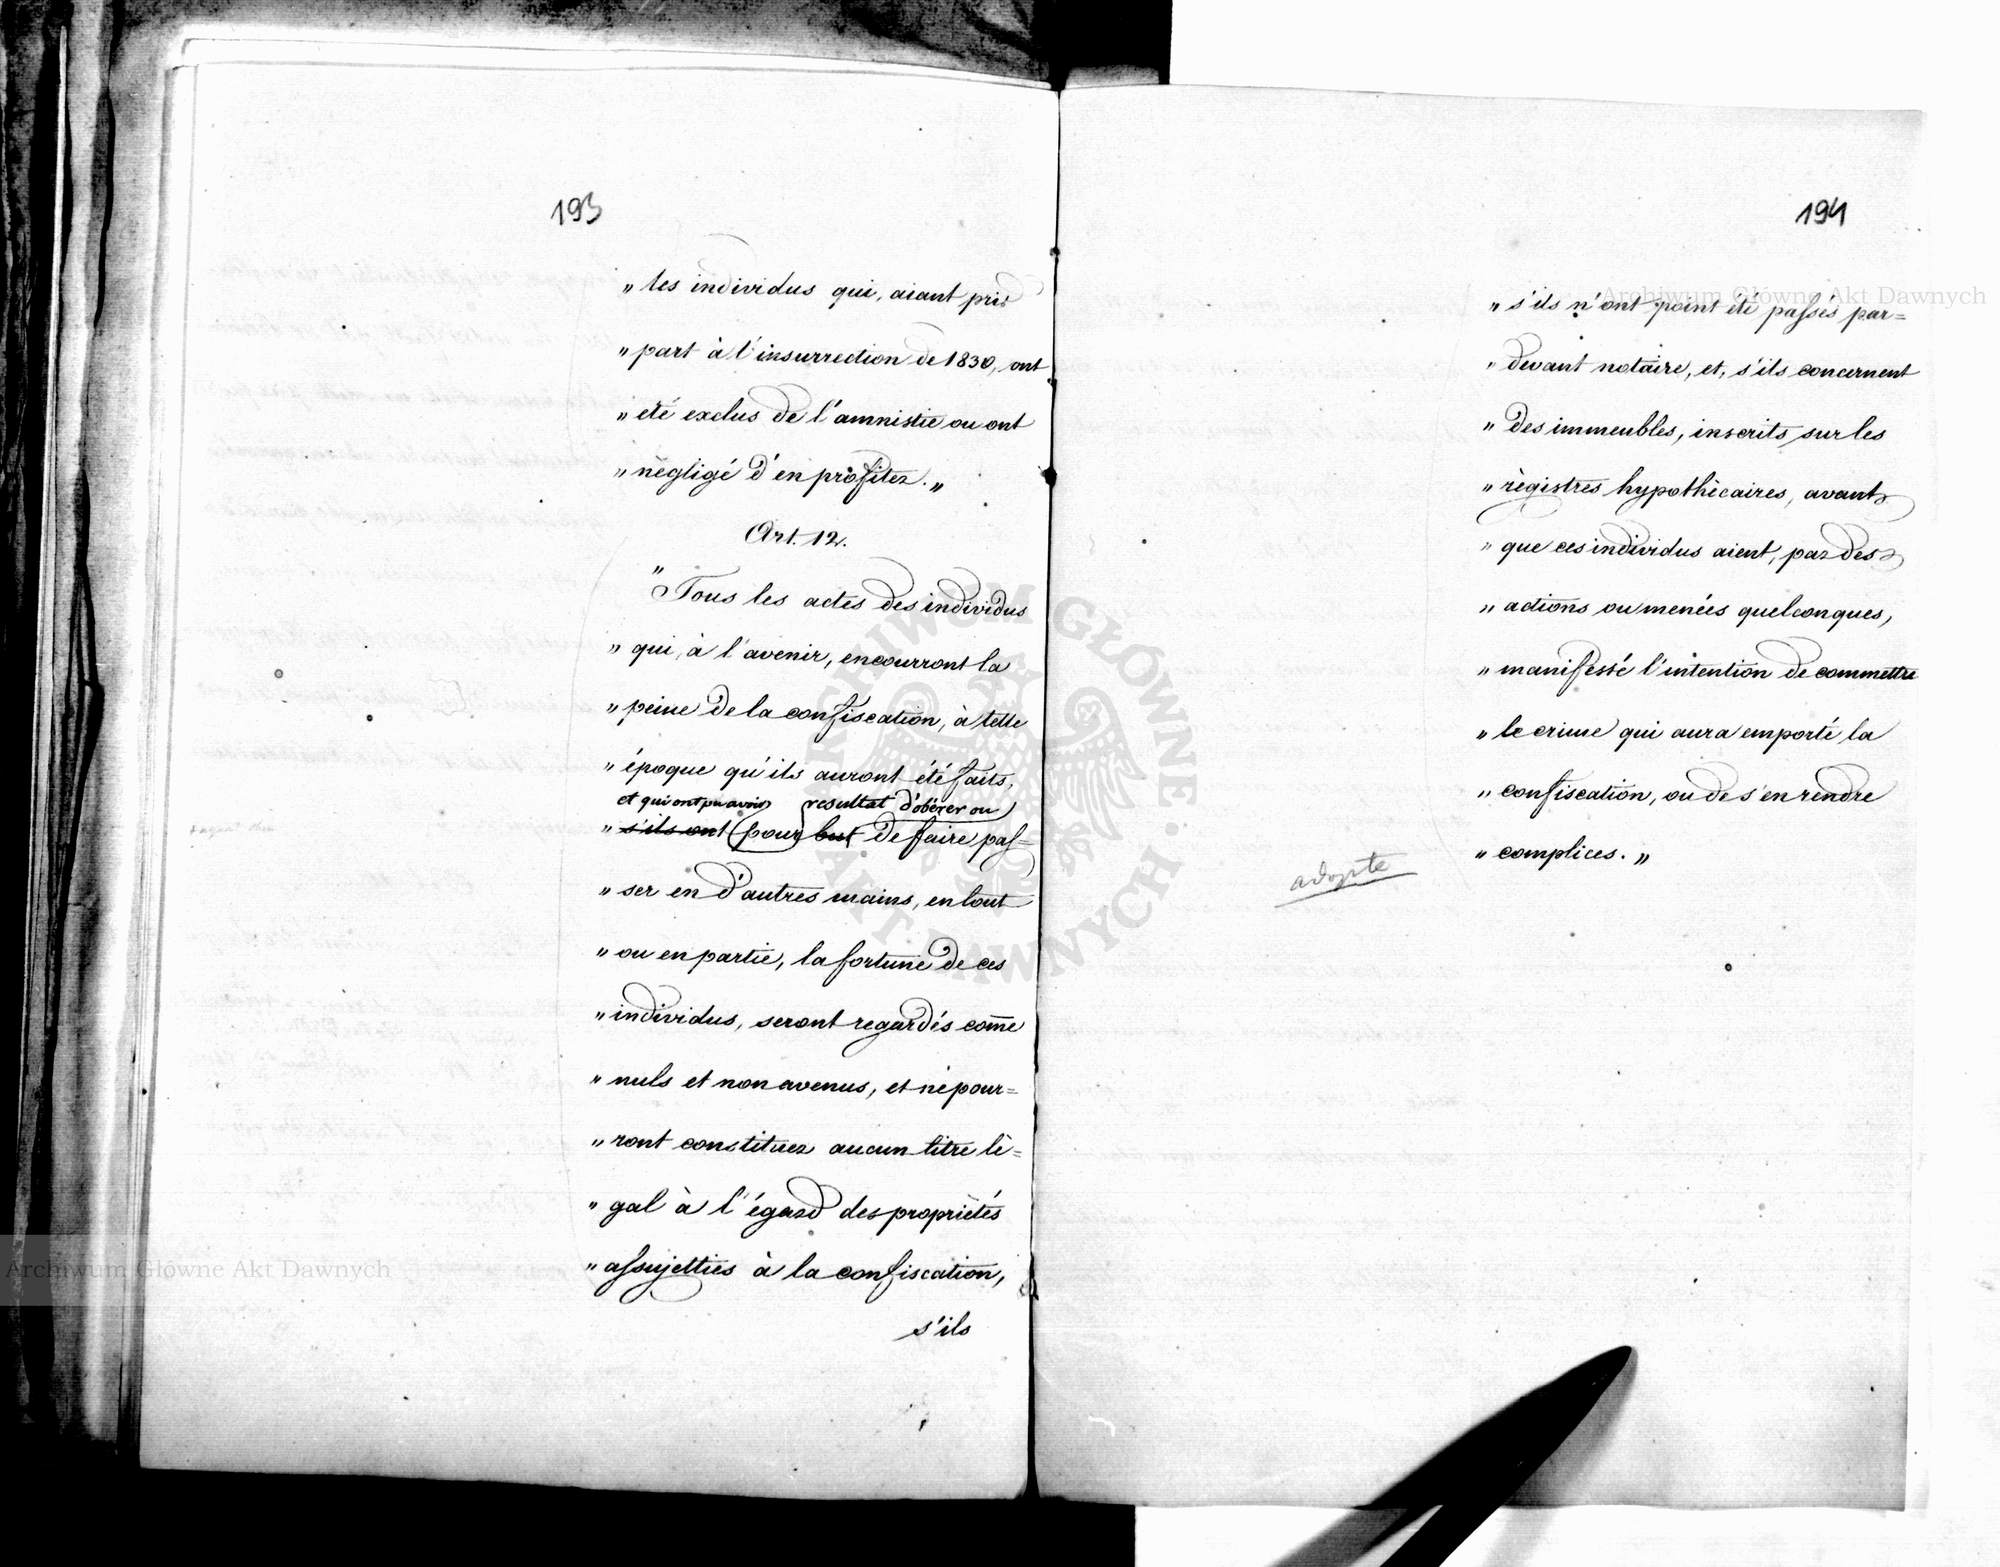 193
„ les individus qui, aiant pris
„ part à l'insurrection de 1830, ont
„ été exclus de l'amnistie ou ont
„ négligé d'en profiter. „
Art. 12.
" Tous les actes des individus
„ qui, à l'avenir, encourront la
„ peine de la confiscation, à telle
„ époque qu'ils auront été faits,
et qui ont pu avoir resultat d'obérer ou
„ s'ils ont pour but de faire pas=
„ ser en d'autres mains, en tout
„ ou en partie, la fortune de ces
„ individus, seront regardés com̄e
„ nuls et non avenus, et ne pour=
„ ront constituer aucun titre lé=
„ gal à l'égard des propriétés
„ assujetties à la confiscation,
s'ils
194
„ s'ils n'ont point été passés par=
„ devant notaire, et, s'ils concernent
„ des immeubles, inscrits sur les
„ régistres hypothécaires, avant
„ que ces individus aient, par des
„ actions ou menées quelconques,
„ manifesté l'intention de commettre
„ le crime qui aura emporté la
„ confiscation, ou de s'en rendre
„ complices. „
adopté
Archiwum Główne Akt Dawnych
Archiwum Główne Akt Dawnych
ARCHIWUM GŁÓWNE AKT DAWNYCH